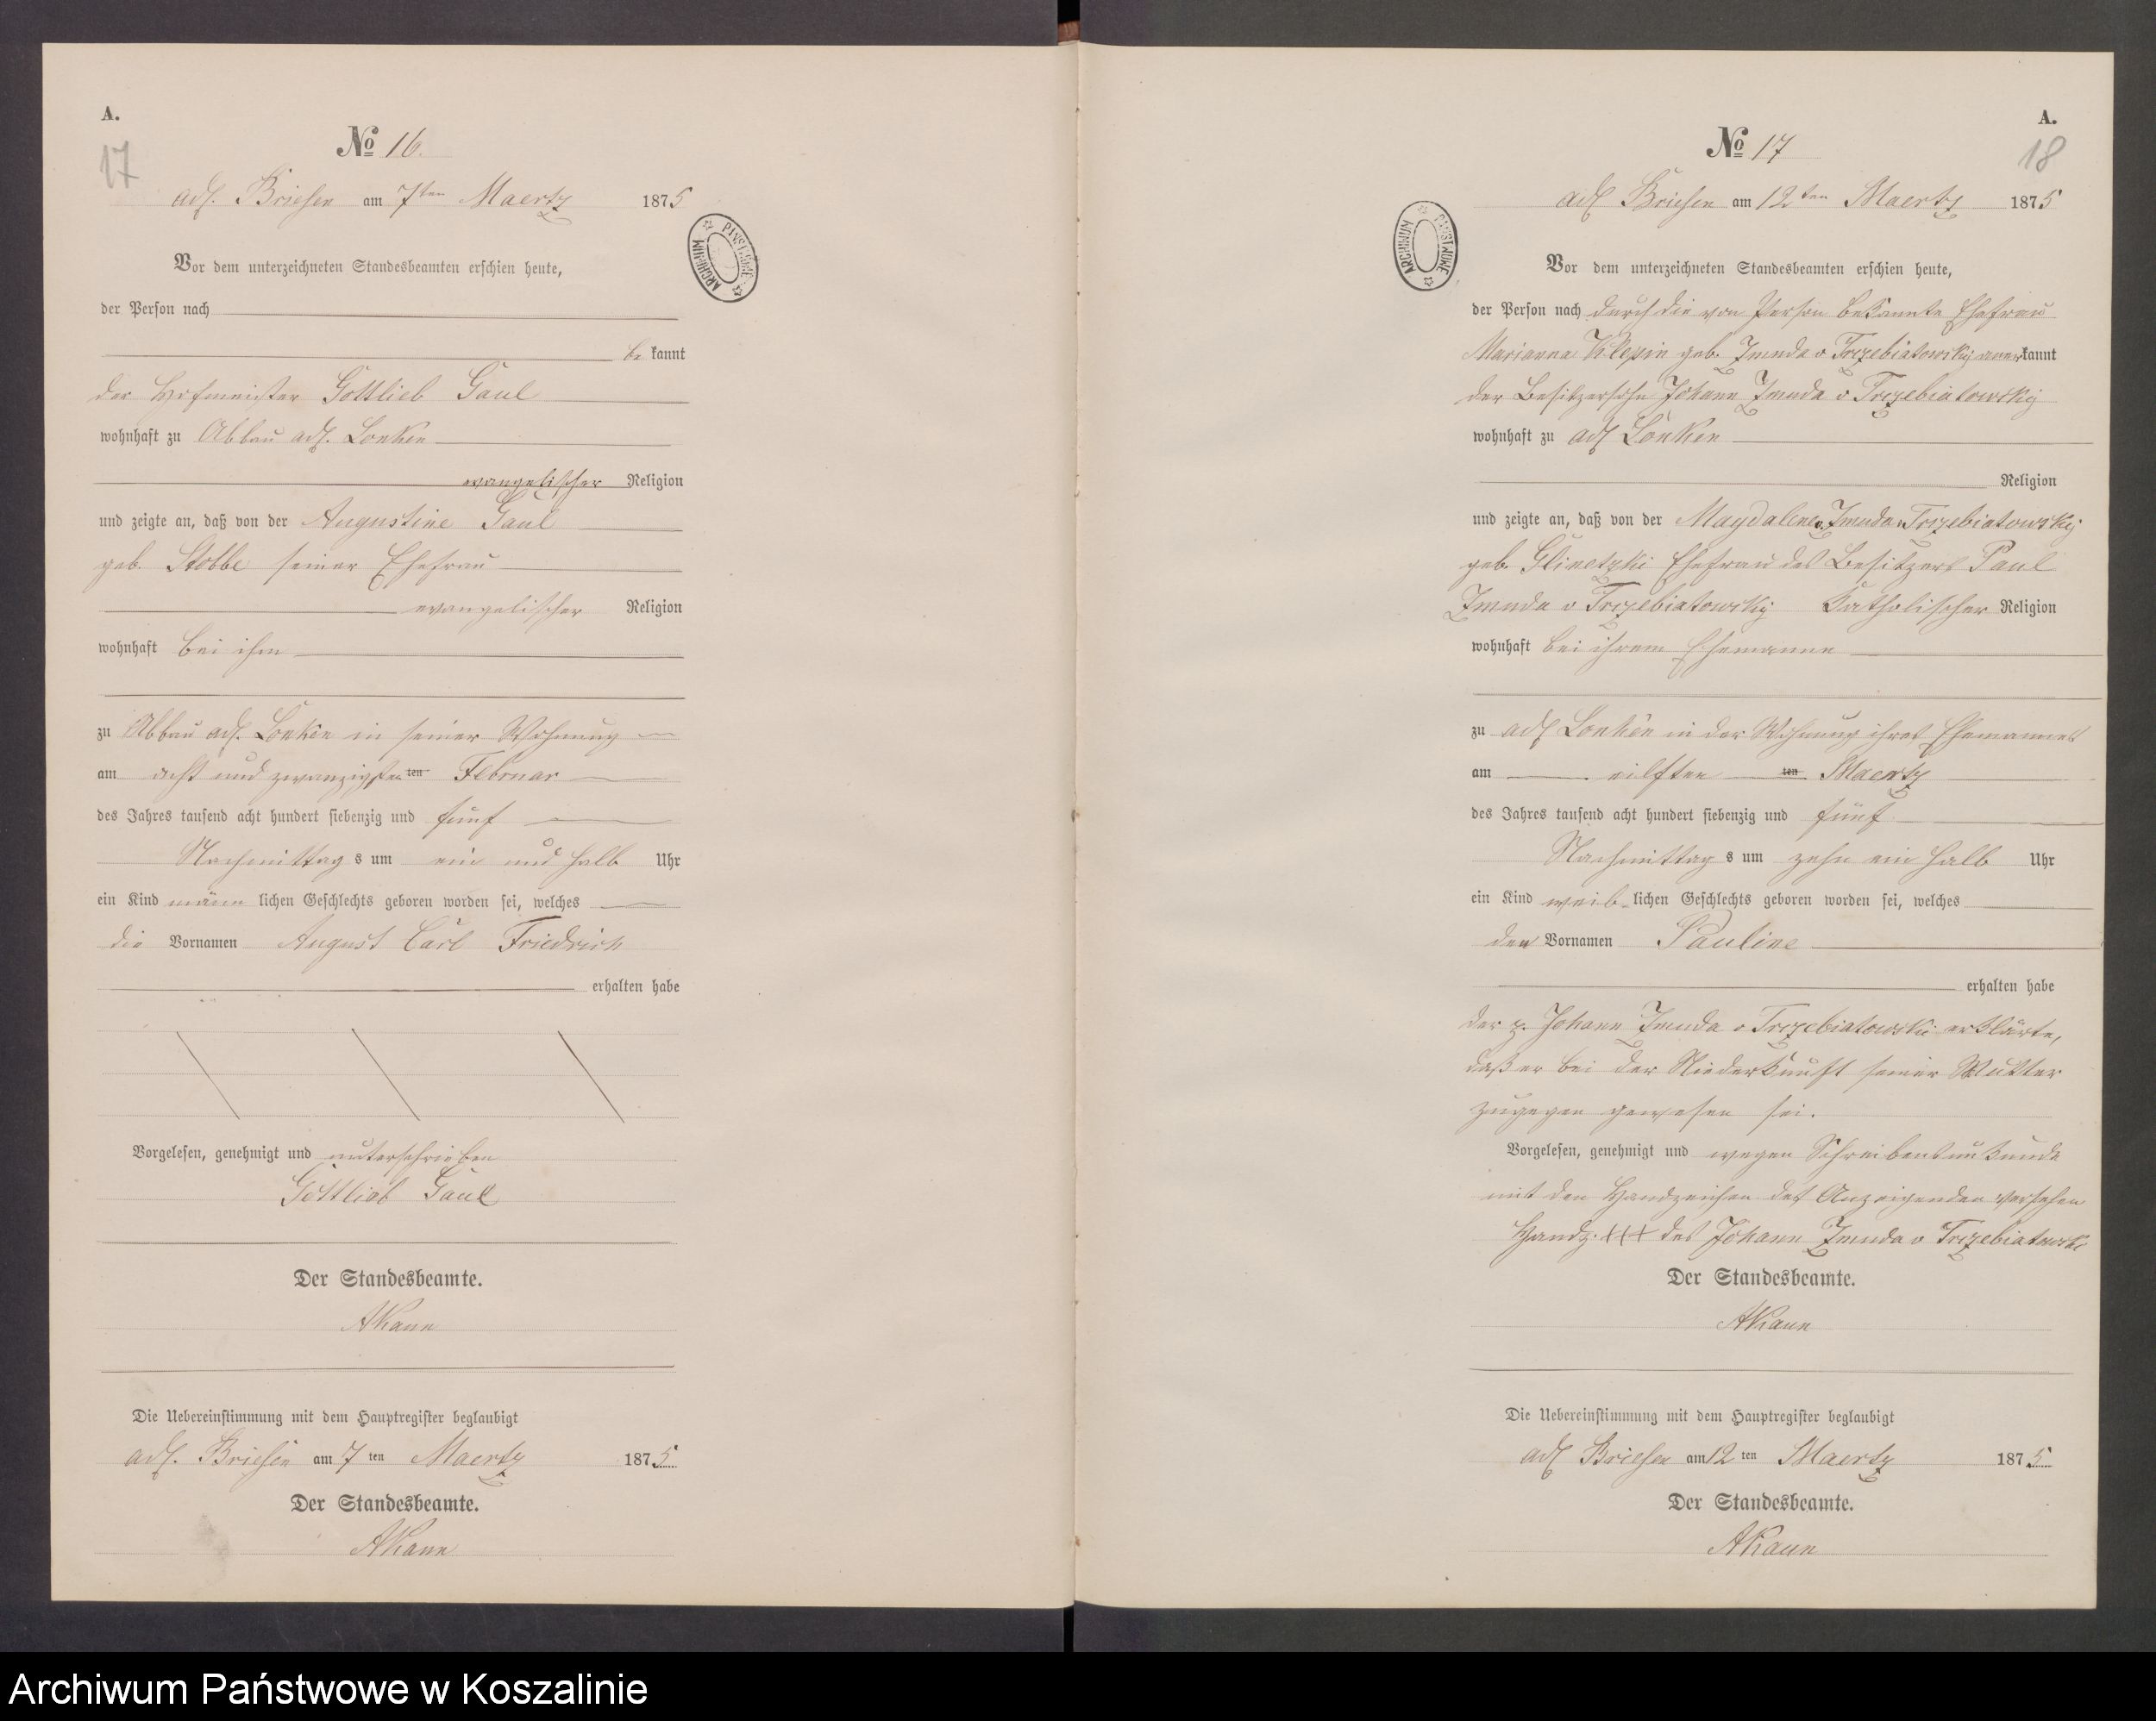 A.
17
No 16.
adl. Briesen am 7ten Maertz 1875
Vor dem unterzeichneten Standesbeamten erschien heute,
der Person nach
be kannt
der Hofmeister Gottlieb Gaul
wohnhaft zu Abbau adl. Lonken
evangelischer Religion
und zeigte an, daß von der Augustine Gaul
geb. Stobbe seiner Ehefrau
evangelischer Religion
wohnhaft bei ihm
zu Abbau adl. Lonken in seiner Wohnung
am acht und zwanzigsten ten Februar
des Jahres tausend acht hundert siebenzig und fünf
Nachmittag s um ein und halb Uhr
ein Kind männ lichen Geschlechts geboren worden sei, welches
die Vornamen August Carl Friedrich
erhalten habe
Vorgelesen, genehmigt und unterschrieben
Gottlieb Gaul
Der Standesbeamte.
Die Uebereinstimmung mit dem Hauptregister beglaubigt
adl. Briesen am 7 ten Maertz 1875
Der Standesbeamte.
ARCHIWUM PAŃSTWOWE
A.
18
No 17
adl Briesen am 12ten Maertz 1875
Vor dem unterzeichneten Standesbeamten erschien heute,
der Person nach durch die von Person bekannte Ehefrau
Marianna Klepin geb. Zmuda v Trzebiatowsky anerkannt
der Besitzersohn Johann Zmuda v Trzebiatowsky
wohnhaft zu adl Lonken
Religion
und zeigte an, daß von der Magdalene Zmuda v Trzebiatowsky
geb. Glinetzki Ehefrau des Besitzers Paul
Zmuda v Trzebiatowsky katholischer Religion
wohnhaft bei ihrem Ehemanne
zu adl Lonken in der Wohnung ihres Ehemannes
am eilften ten Maertz
des Jahres tausend acht hundert siebenzig und fünf
Nachmittag s um zehn ein halb Uhr
ein Kind weib- lichen Geschlechts geboren worden sei, welches
den Vornamen Pauline
erhalten habe
der p. Johann Zmuda v Trzebiatowski erklärte,
daß er bei der Niederkunft seiner Mutter
zugegen gewesen sei.
Vorgelesen, genehmigt und wegen Schreibensunkunde
mit den Handzeichen des Anzeigenden versehen
Handz. +++ des Johann Zmuda v Trzebiatowski
Der Standesbeamte.
Die Uebereinstimmung mit dem Hauptregister beglaubigt
adl Briesen am 12 ten Maertz 1875
Der Standesbeamte.
ARCHIWUM PAŃSTWOWE
Archiwum Państwowe w Koszalinie